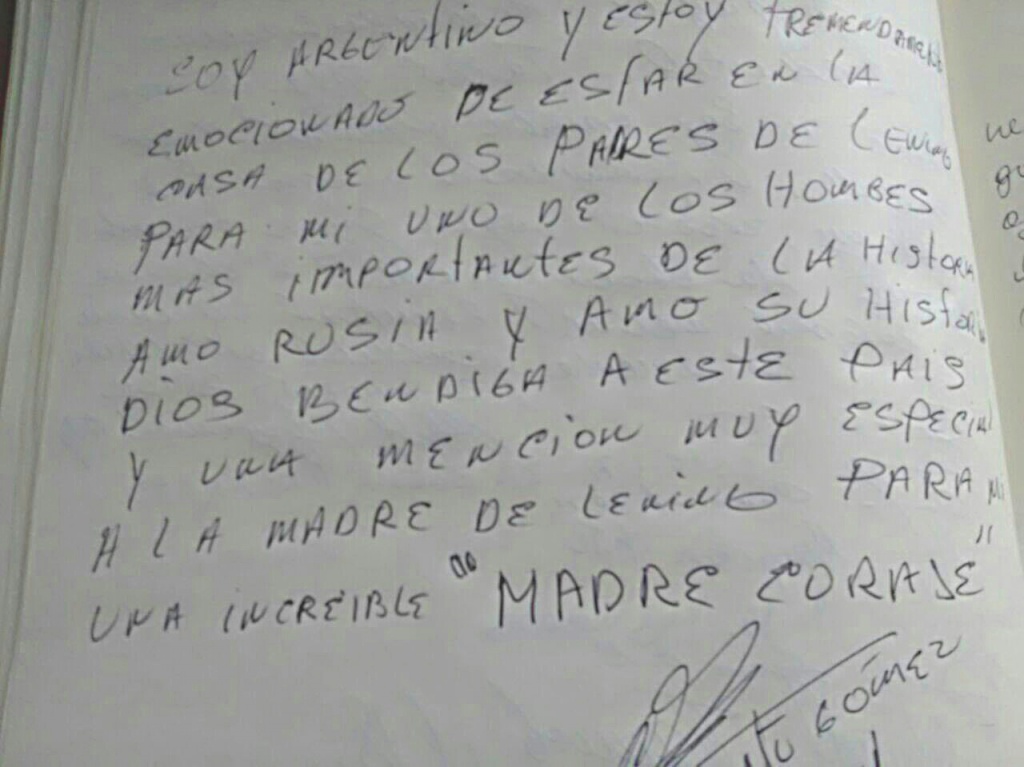 SOY ARGENTINO Y ESTOY TREMENDAMENTE
EMOCIONADO DE ESTAR EN LA
CASA DE LOS PADRES DE LENING
PARA MI UNO DE LOS HOMBES
MAS IMPORTANTES DE LA HISTORIA
AMO RUSIA Y AMO SU HISTORIA
DIOS BENDIGA A ESTE PAIS
Y UNA MENCION MUY ESPECIAL
A LA MADRE DE LENING PARA MI
UNA INCREIBLE "MADRE CORAJE"
GÓMEZ